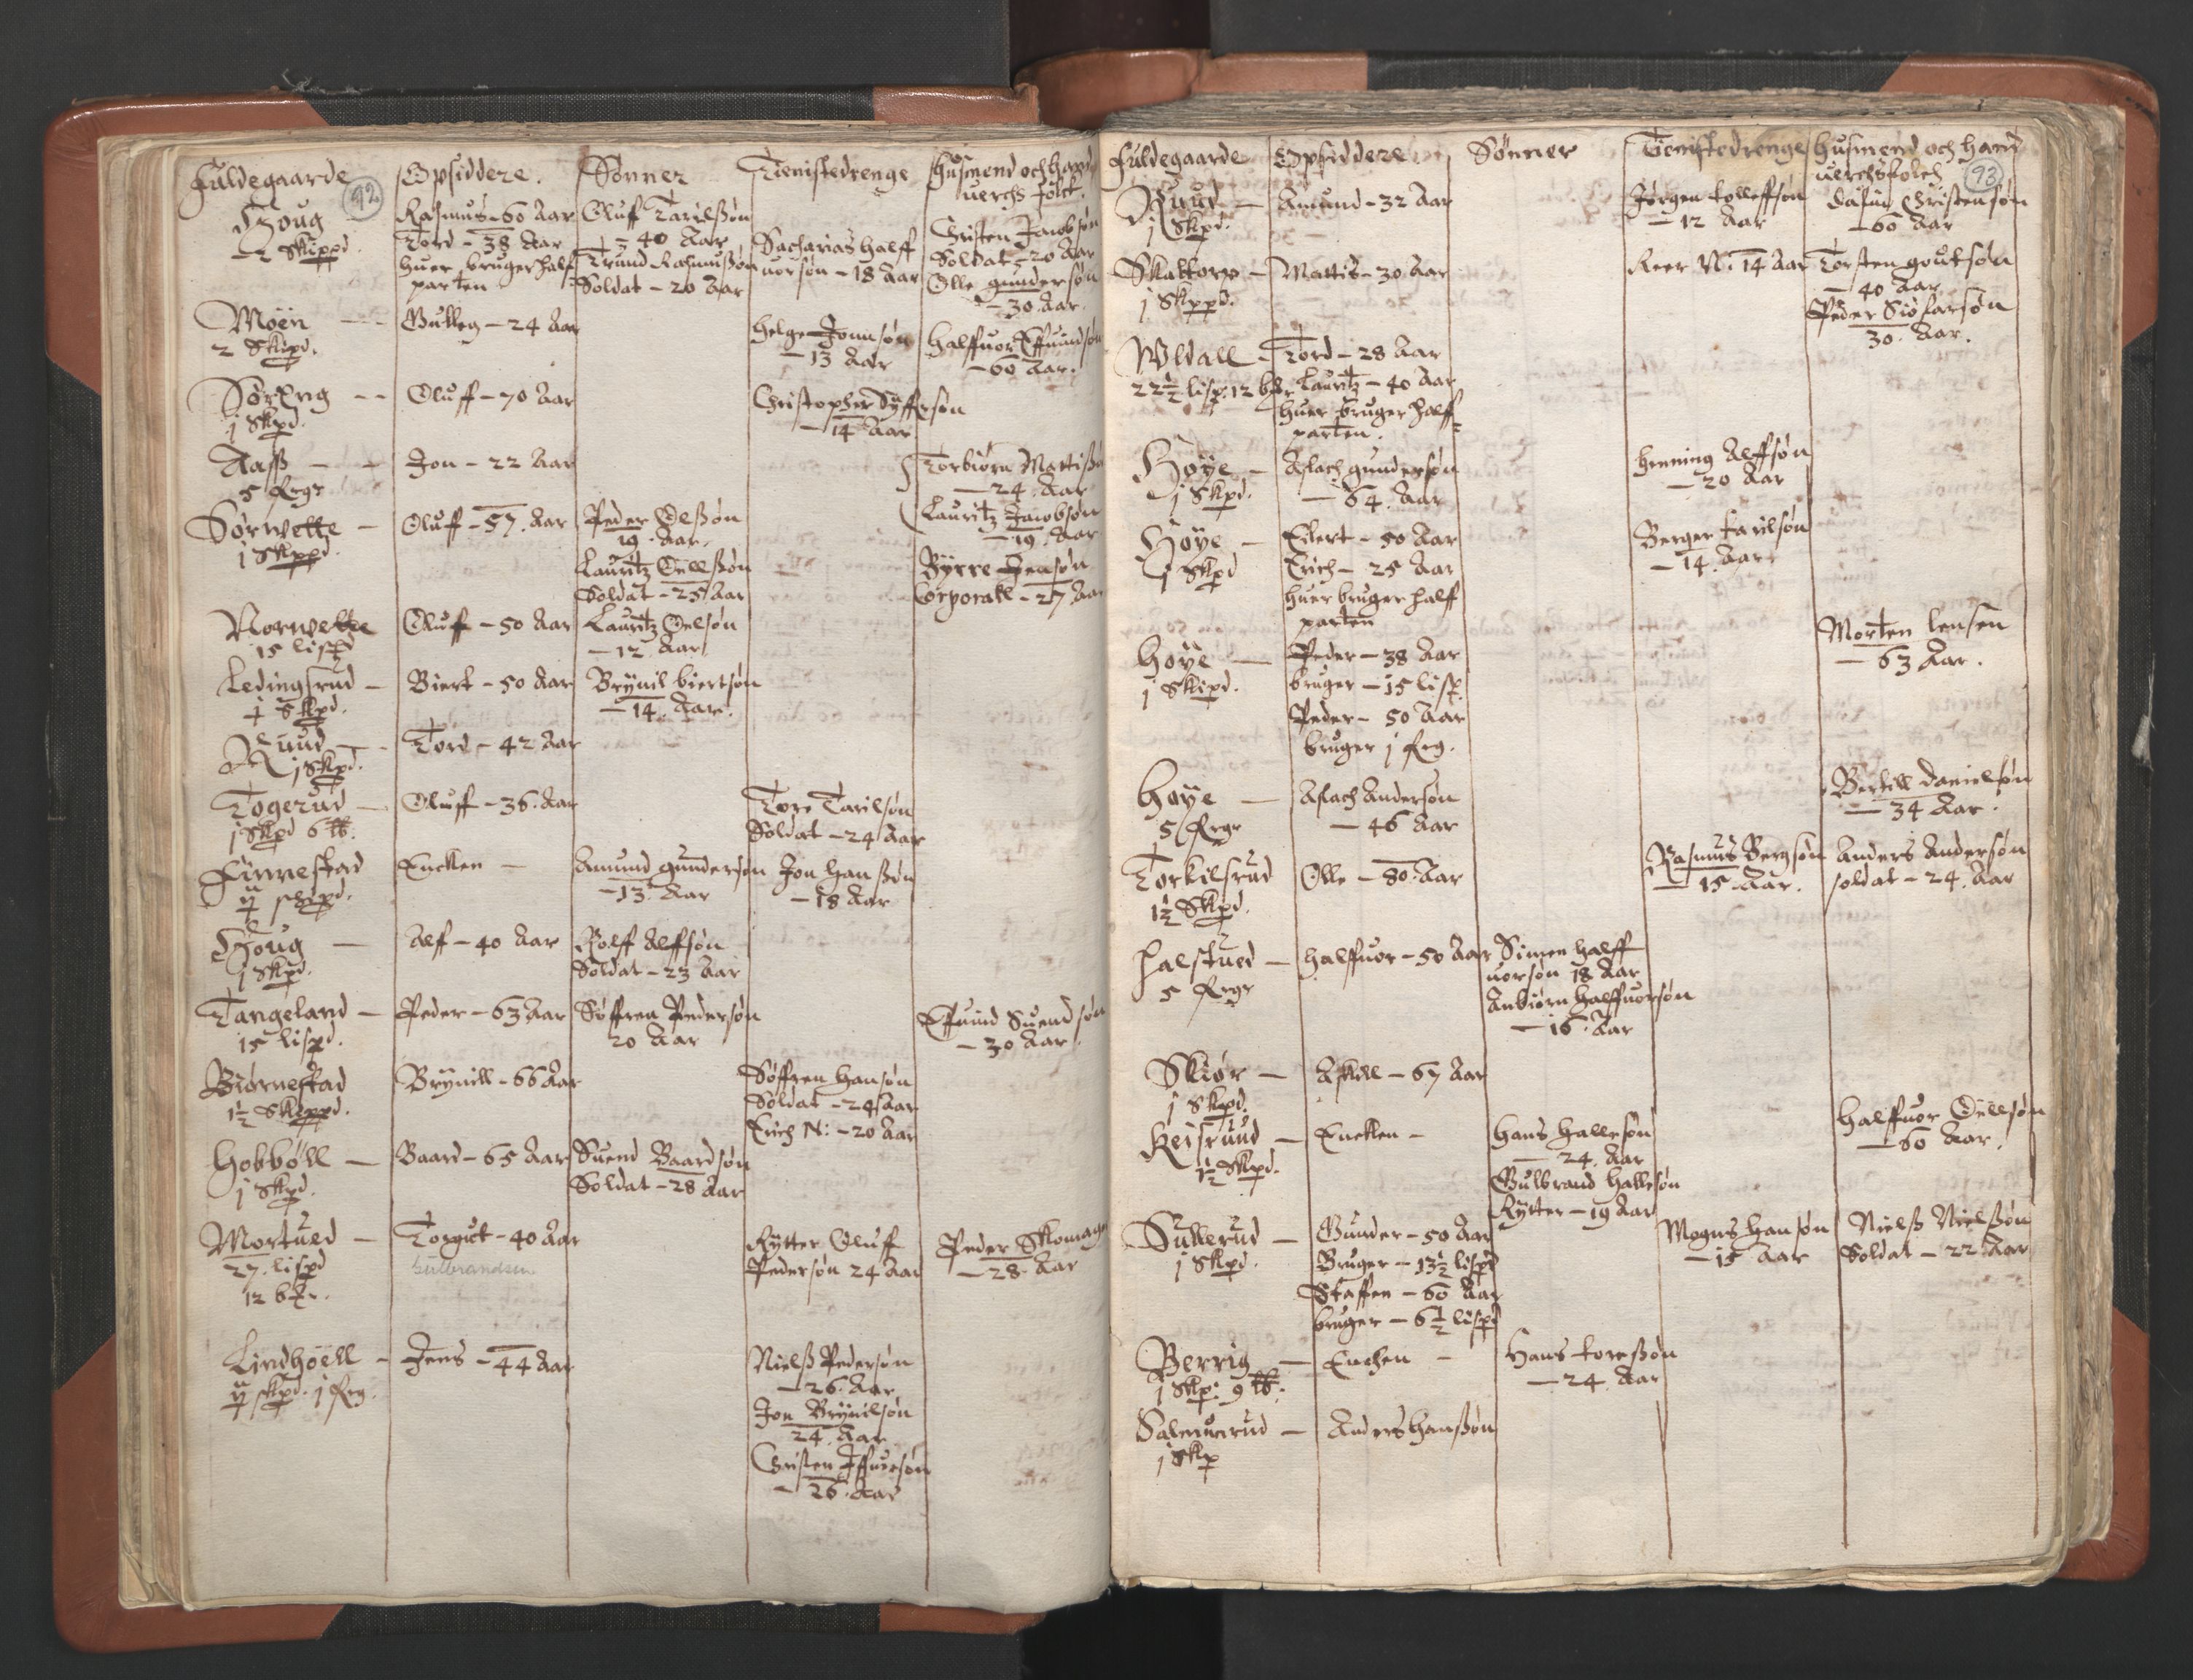 Fuldegaarde
Opsiddere.
Sønner
Tienistedrenge
Husmend och Hand
uerchs folck.
92
Houg
2 Skippd.
Rasmus - 60 Aar
Tord - 38 Aar
huer bruger half
parten
Oluff Tarilßøn
- 40 Aar
Trund Rasmußøn
Soldat - 20 Aar
Sacharias Halff
uorsøn - 18 Aar
Christen Jacobsøn
Soldat - 20 Aar
Olle gundersøn
- 30 Aar.
Moën
2 Skipd.
Gulleg - 24 Aar
Helge Jonnsøn
- 13 Aar
Halffuor Effuindsøn
- 60 Aar.
SørEng
j Skpd.
Oluff - 70 Aar
Christopher Syffersøn
- 14 Aar
Aaß
5 Regr
Jon - 22 Aar
Torbiørn Mattißøn
- 24. Aar
Lauritz Jacobsøn
- 19. Aar
Sørvette
j Skppd.
Oluff - 57. Aar
Peder Oelßøn
19. Aar.
Lauritz Oellßøn
Soldat - 25 Aar
Byrre Jensøn
Corporall - 27 Aar
Norvette
15 lispd
Oluff - 50 Aar
Lauritz Oelsøn
- 12 Aar
Ledingsrud
j Skpd.
Biert - 50 Aar
Brynil biertsøn
- 14. Aar.
Ruud
j Skpd.
Tord - 42 Aar
Togerud
j Skpd 6 tt.
Oluff - 36. Aar
Tore Tarilsøn
Soldat - 24 Aar
Finnestad
ij skipd.
Encken -
Amund gundersøn
- 13. Aar
Jon Hanßøn
- 18 Aar
Houg
j Skpd.
Alf - 40 Aar
Rolff Alffsøn
Soldat - 23 Aar
Tangeland
15 lispd.
Peder - 63 Aar
Søffren Pedersøn
20 Aar
Effuind Suendsøn
- 30 Aar.
Biørnestad
1½ Skippd.
Brynill - 66 Aar
Søffren Hansøn
Soldat - 24 Aar
Erich N: - 20 Aar
Hobbøll
j Skpd.
Baard - 65 Aar
Suend Baardsøn
Soldat - 28 Aar
Mortued
27. lispd
12 bfr.
Torgut - 40 Aar
Gulbrandsen
Rytter Oluff
Pedersøn 24 Aar
Peder Skomager
- 28. Aar
Lindhøell
ij skpd. j Reg.
Jens - 44 Aar
Nielß Pedersøn
- 26. Aar
Jon Brynilsøn
24. Aar
Christen Iffuersøn
- 26. Aar
Fuldegaarde
Opsiddere
Sønner
Tienistedrenge
Husmend och Hand
uerchsfolch
93
Ruud
j Skpd.
Amund - 32 Aar
Jørgen tolleffsøn
- 12 Aar
Dafind Christensøn
- 60 Aar
Skaltorp
j Skppd.
Mattis - 30 Aar
Reer N: 14 Aar
Torsten goutsøn
- 40 Aar
Peder Siøfarsøn
30. Aar.
Wldall
22½ lisp. 12 bfr
Tord - 28 Aar
Lauritz - 40 Aar
huer bruger half
parten.
Høÿe
j Skpd.
Aslach gundersøn
- 64. Aar
Henning Alffsøn
- 20 Aar
Høÿe
j Skpd
Eilert - 50 Aar
Erich - 25 Aar
huer bruger halff
parten
Berger tarilsøn
- 14. Aar
høÿe
j Skipd.
Peder - 38 Aar
bruger - 15 lisp.
Peder - 50 Aar
bruger j Reg.
Morten Iensen
- 63 Aar.
høÿe
5 Regr
Aslach Andersøn
- 46 Aar
Bertill Danielsøn
- 34 Aar.
Torkilsrud
1½ Skpd.
Olle - 80. Aar
Rasmus Bergsøn
- 15. Aar.
Anders Andersøn
soldat - 24. Aar
Halstued
5 Regr
Halffuor - 50 Aar
Simen Halff
uorsøn 18 Aar
Anbiørn Halffuorsøn
- 16. Aar
Skiør
j Skpd.
Askill - 67 Aar
Keisrud
1½ Skpd.
Encken -
Hans Hallesøn
- 24. Aar
Gulbrand Hallesøn
Rytter - 19 Aar
Halffuor Oellsøn
- 60 Aar.
Sullerud
j Skpd.
Gunder - 50 Aar
Bruger - 13½ lispd
Staffen - 60 Aar
bruger - 6½ lispd
Mogns Hansøn
- 15 Aar
Nielß Nielßøn
Soldat - 22 Aar
Berrig
j Skp: 9 tt.
Enchen -
Hans toreßøn
- 24. Aar
Salmunrud
j Skp
Anders Hanßøn